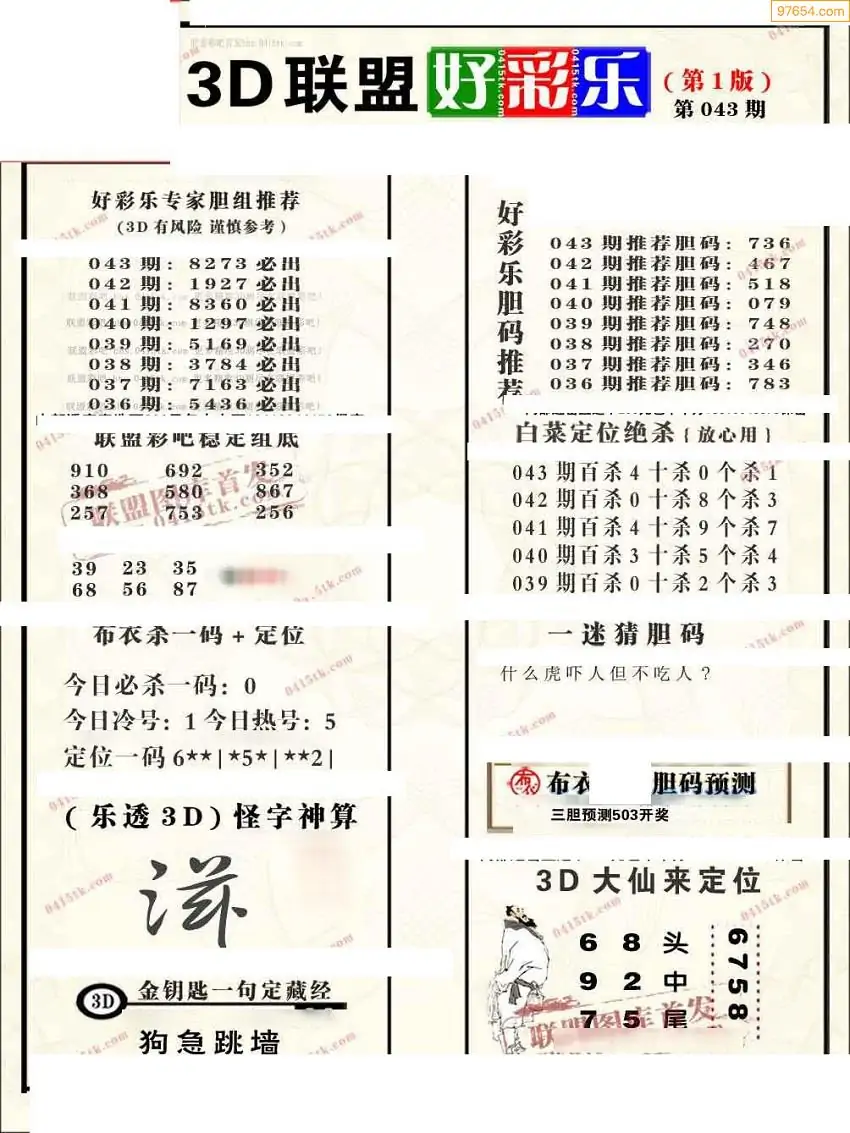 97654.com
3D联盟好彩乐(第1版)
第043期
好彩乐专家胆组推荐
(3D有风险 谨慎参考)
043期:8273必出
042期:1927必出
041期:8360必出
040期:1297必出
039期:5169必出
038期:3784必出
037期:7163必出
036期:5436必出
联盟彩吧稳定组底
910 692 352
368 580 867
257 753 256
联盟图库首发
0415tk.com
39 23 35
68 56 87
布衣杀一码+定位
今日必杀一码:0
今日冷号:1 今日热号:5
定位一码6**|*5*|**2|
(乐透3D)怪字神算
3D
金钥匙一句定藏经
狗急跳墙
好彩乐胆码推荐
043期推荐胆码:736
042期推荐胆码:467
041期推荐胆码:518
040期推荐胆码:079
039期推荐胆码:748
038期推荐胆码:270
037期推荐胆码:346
036期推荐胆码:783
白菜定位绝杀{放心用}
043期百杀4十杀0个杀1
042期百杀0十杀8个杀3
041期百杀4十杀9个杀7
040期百杀3十杀5个杀4
039期百杀0十杀2个杀3
一迷猜胆码
什么虎吓人但不吃人?
布衣 胆码预测
三胆预测503开奖
3D大仙来定位
6 8 头
9 2 中
7 5 尾
6758
联盟图库首发